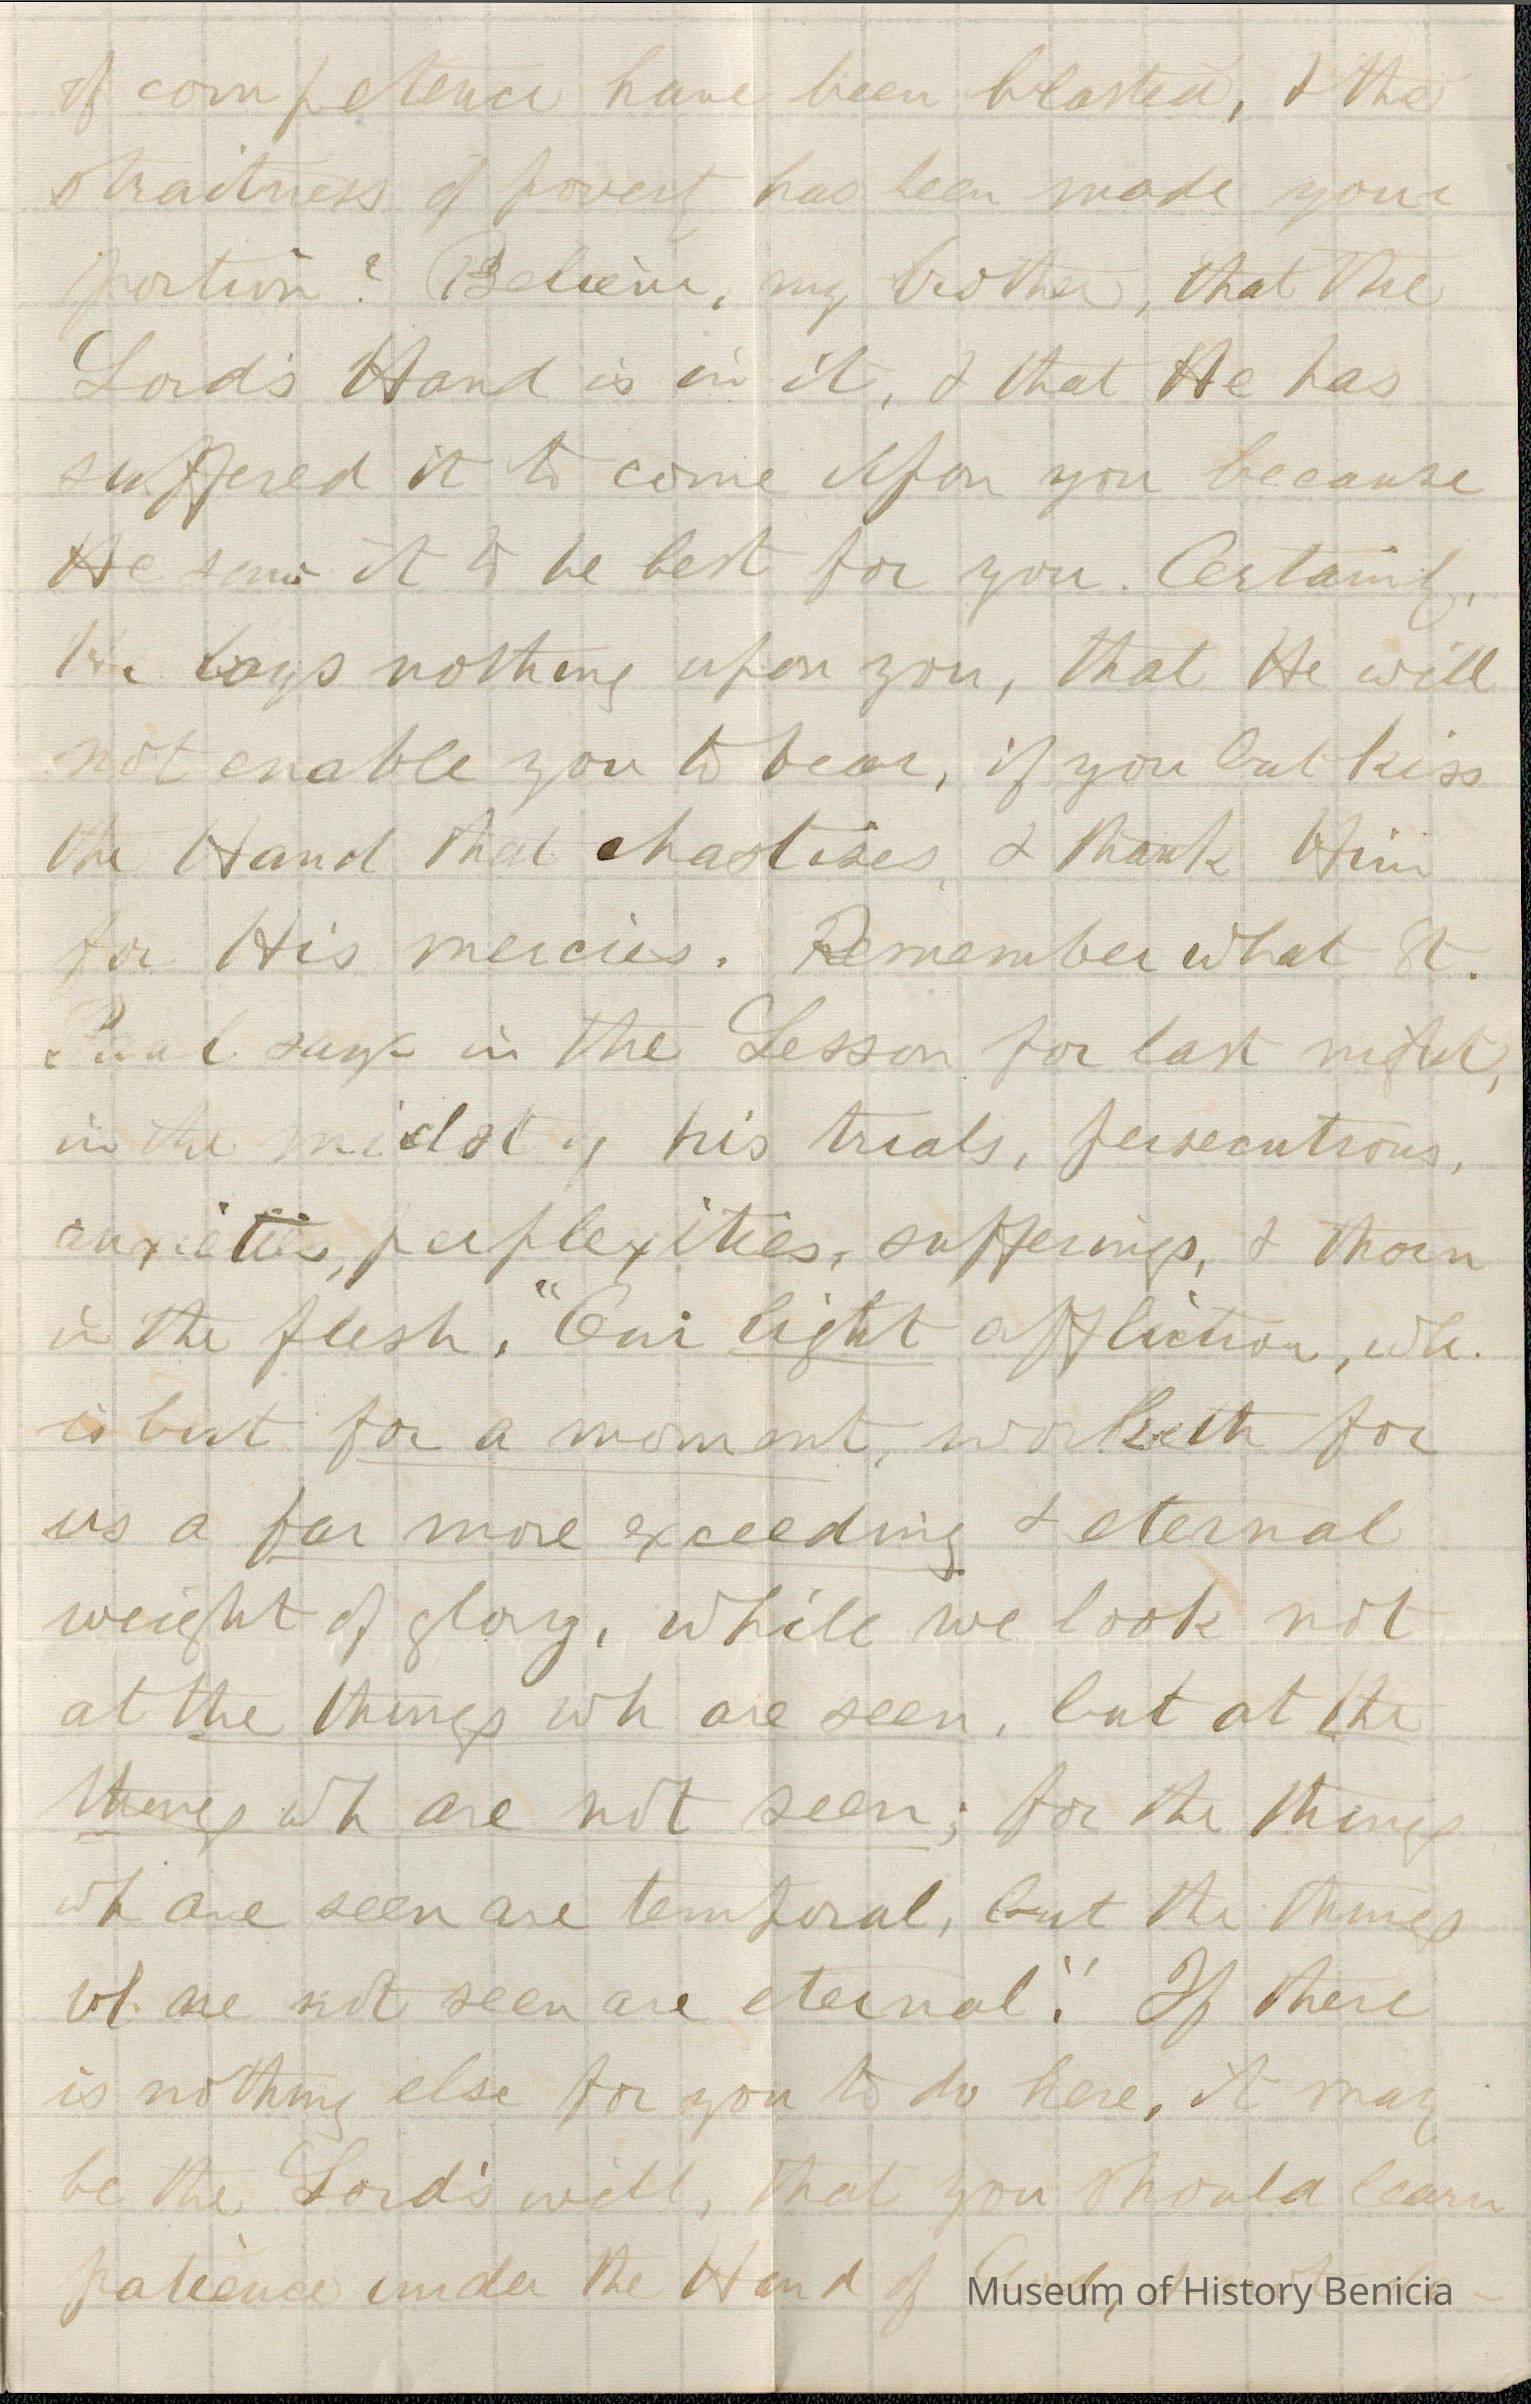 of competence have been blasted, & the
straitness of poverty has been made your
portion? Believe, my brother, that the
Lord's Hand is in it, & that He has
suffered it to come upon you because
He sees it to be best for you. Certainly,
He lays nothing upon you, that He will
not enable you to bear, if you but kiss
the Hand that chastises, & thank Him
for His mercies. Remember what St.
Paul says in the Lesson for last night,
in the midst of his trials, persecutions,
anxieties, perplexities, sufferings, & thorn
in the flesh, "Our light affliction, wh.
is but for a moment, worketh for
us a far more exceeding & eternal
weight of glory, while we look not
at the things wh are seen, but at the
things wh are not seen; for the things
wh are seen are temporal, but the things
wh. are not seen are eternal." If there
is nothing else for you to do here, it may
be the Lord's will, that you should learn
patience under the Hand of God,
Museum of History Benicia